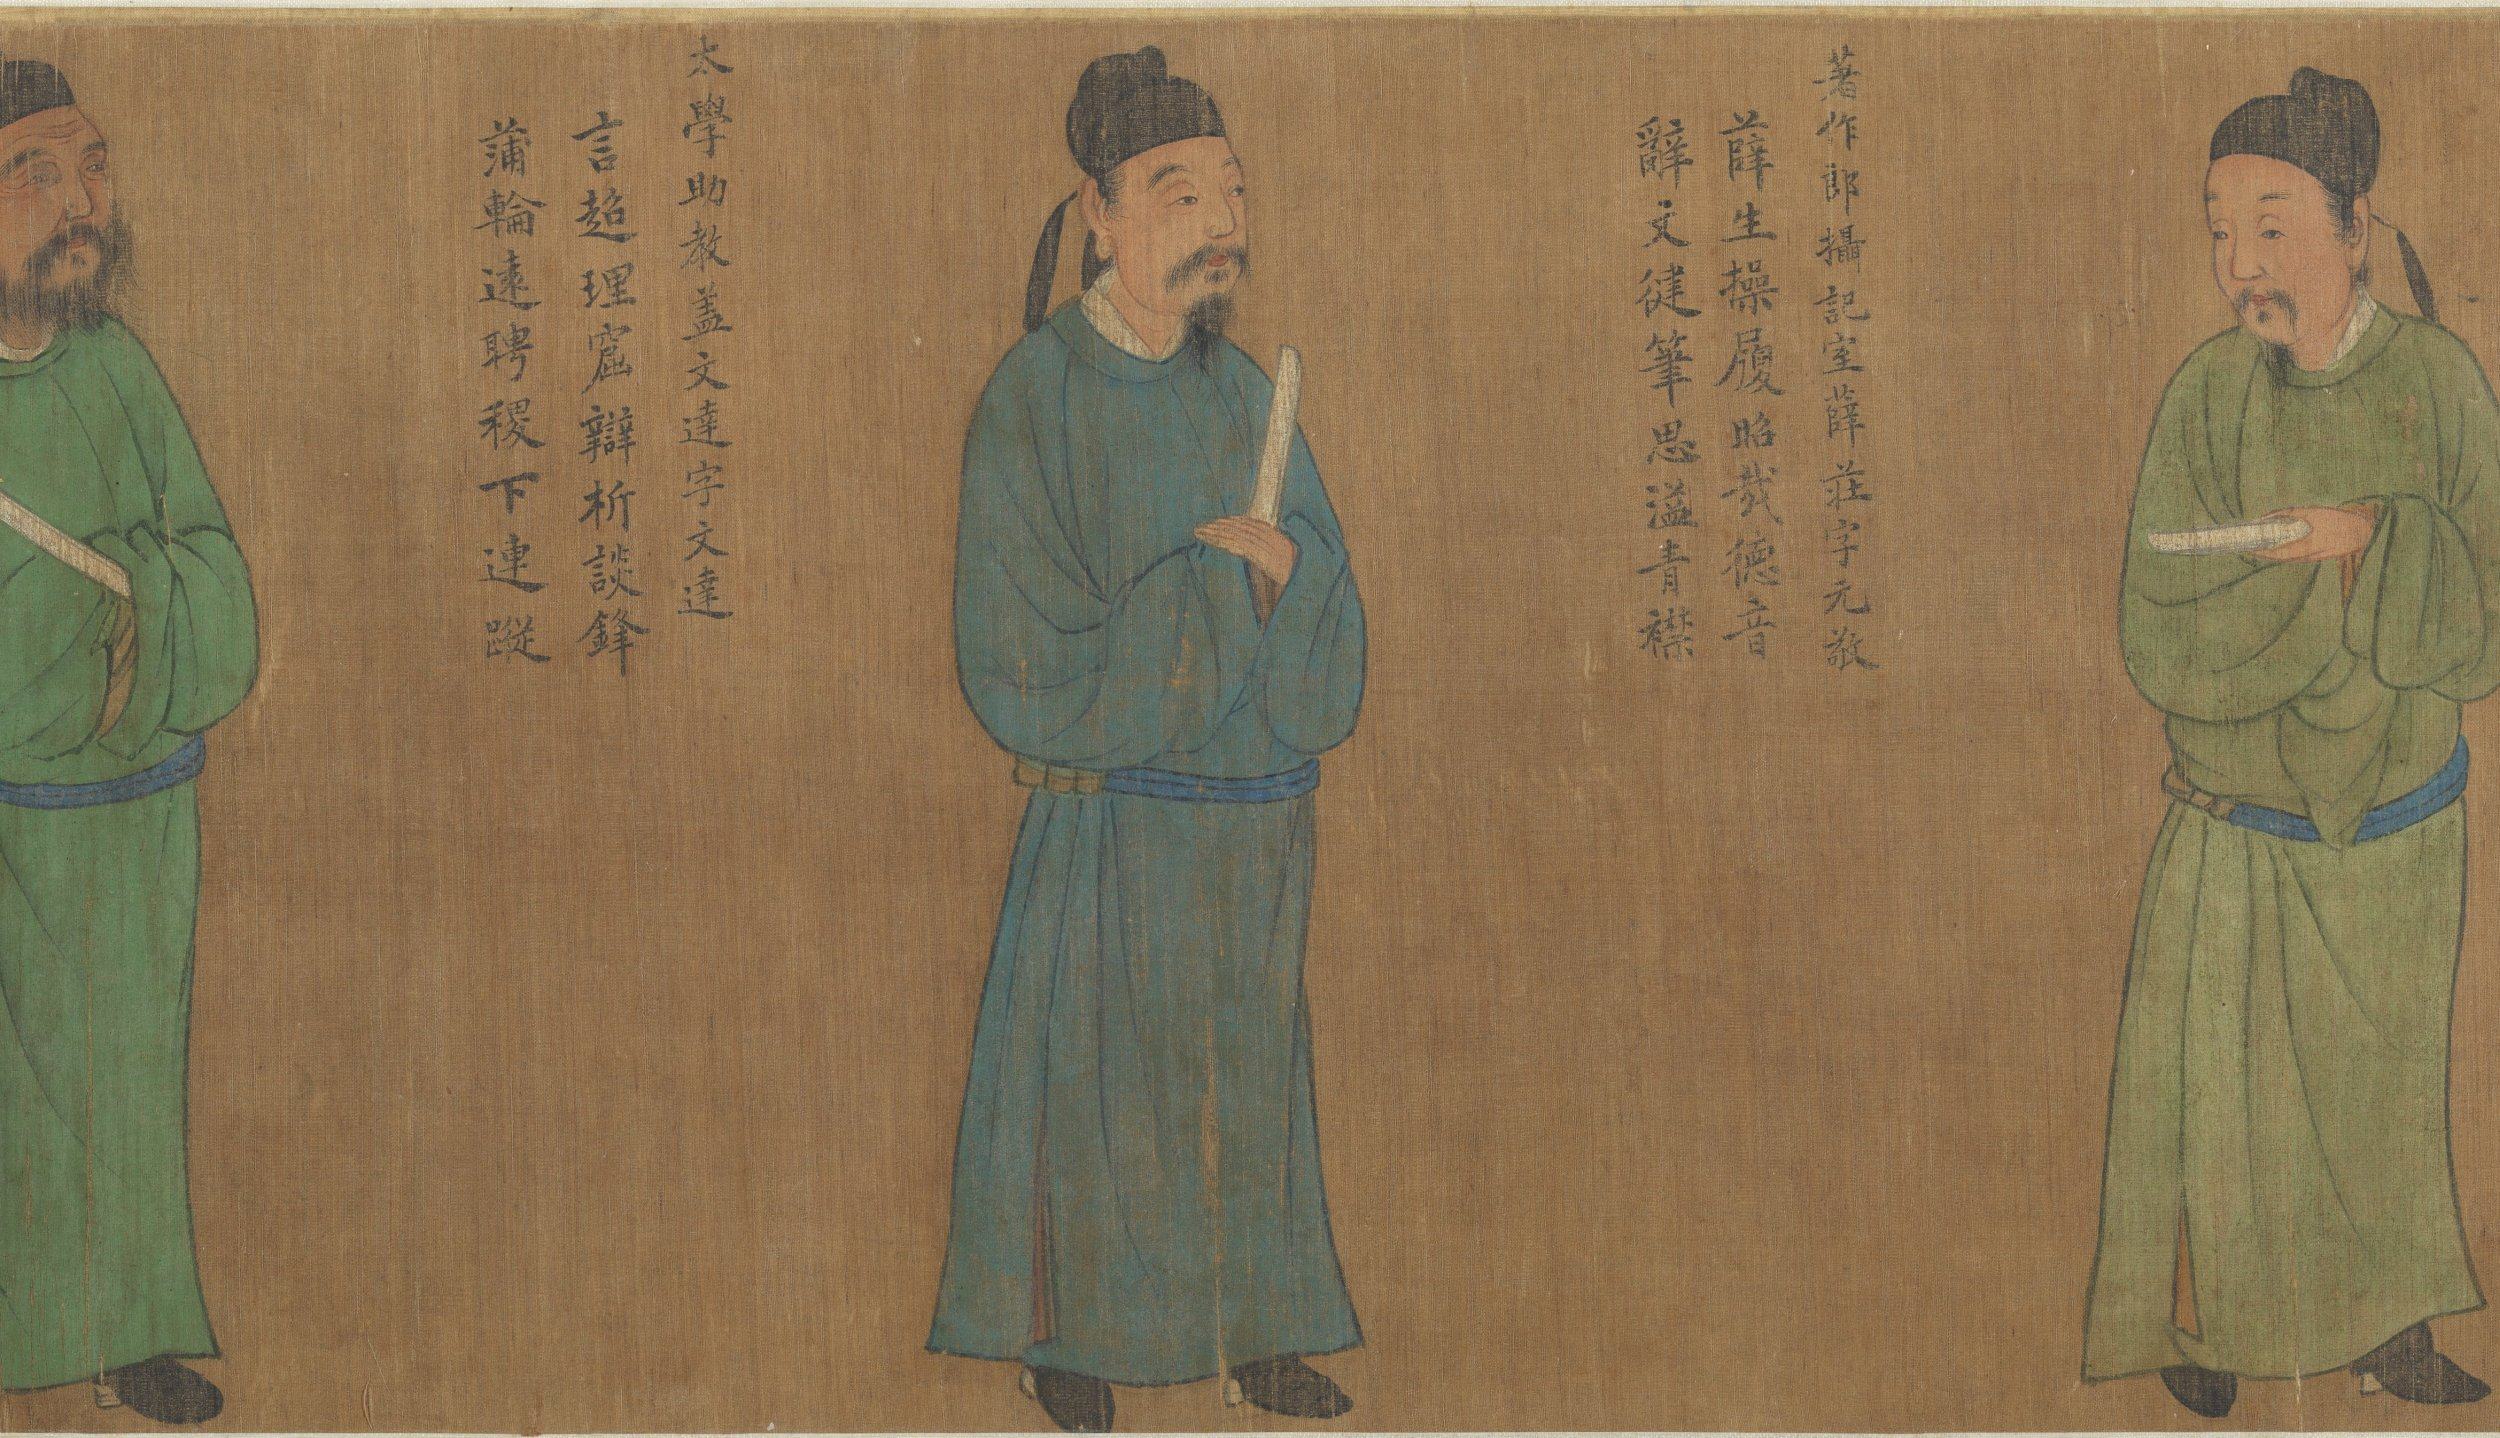 著作郎攝記室薛莊字元敬
薛生操履昭哉德音
辭文健筆思溢青襟
太學助教盖文達字文達
言超理窟辯析談鋒
蒲輪遠聘稷下連蹤